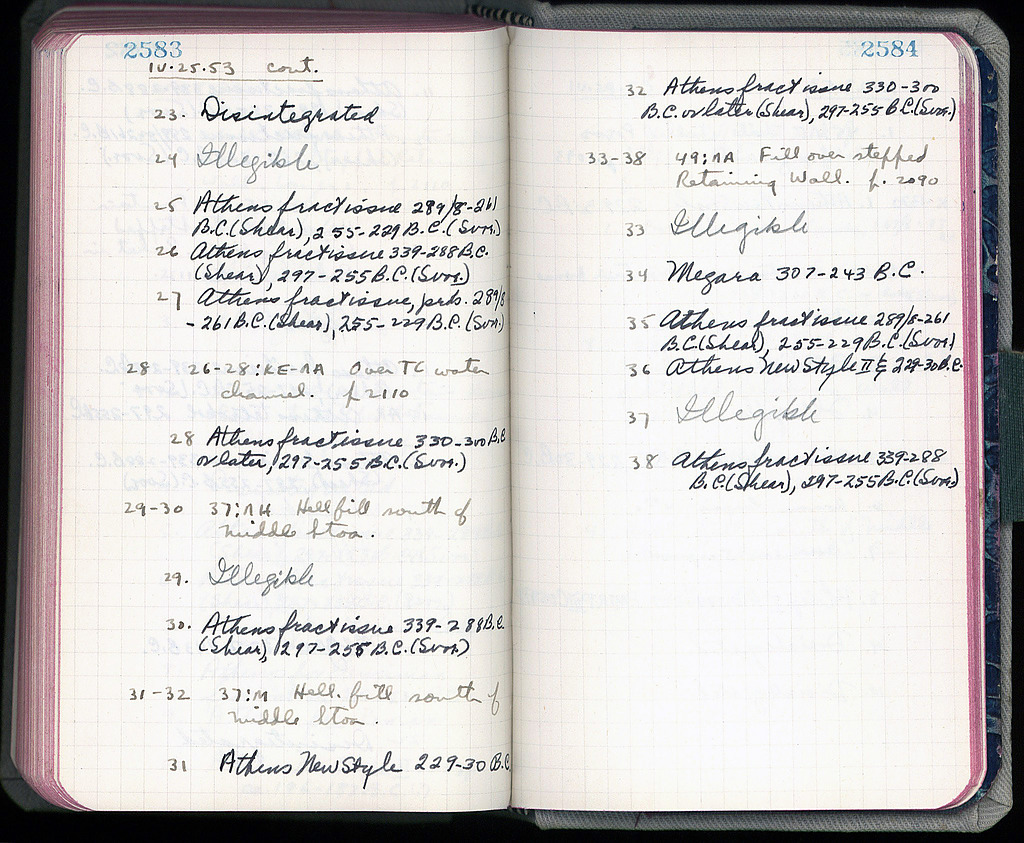 2583
IV.25.53 cont.
23. Disintegrated
24 Illegible
25 Athens fract issue 289/8-261
B.C. (Shear), 255-229 B.C. (Svor.)
26 Athens fract issue 339-288 B.C.
(Shear), 297-255 B.C. (Svor.)
27 Athens fract issue, prb. 289/8
-261 B.C. (Shear), 255-229 B.C. (Svor.)
28 26-28:KE-ΛA Over TC water
channel. p. 2110
28 Athens fract issue 330-300 B.C.
or later, 297-255 B.C. (Svor.)
29-30 37:ΛH Hell fill south of
middle Stoa.
29. Illegible
30. Athens fract issue 339-288 B.C.
(Shear), 297-255 B.C. (Svor.)
31-32 37:M Hell. fill south of
middle Stoa.
31 Athens New Style 229-30 B.C.
2584
32 Athens fract issue 330-300
B.C. or later (Shear), 297-255 B.C. (Svor.)
33-38 49:ΛA Fill over stepped
Retaining Wall. p. 2090
33 Illegible
34 Megara 307-243 B.C.
35 Athens fract issue 289/8-261
B.C. (Shear), 255-229 B.C. (Svor.)
36 Athens New Style 229-30 B.C.
37 Illegible
38 Athens fract issue 339-288
B.C. (Shear), 297-255 B.C. (Svor.)